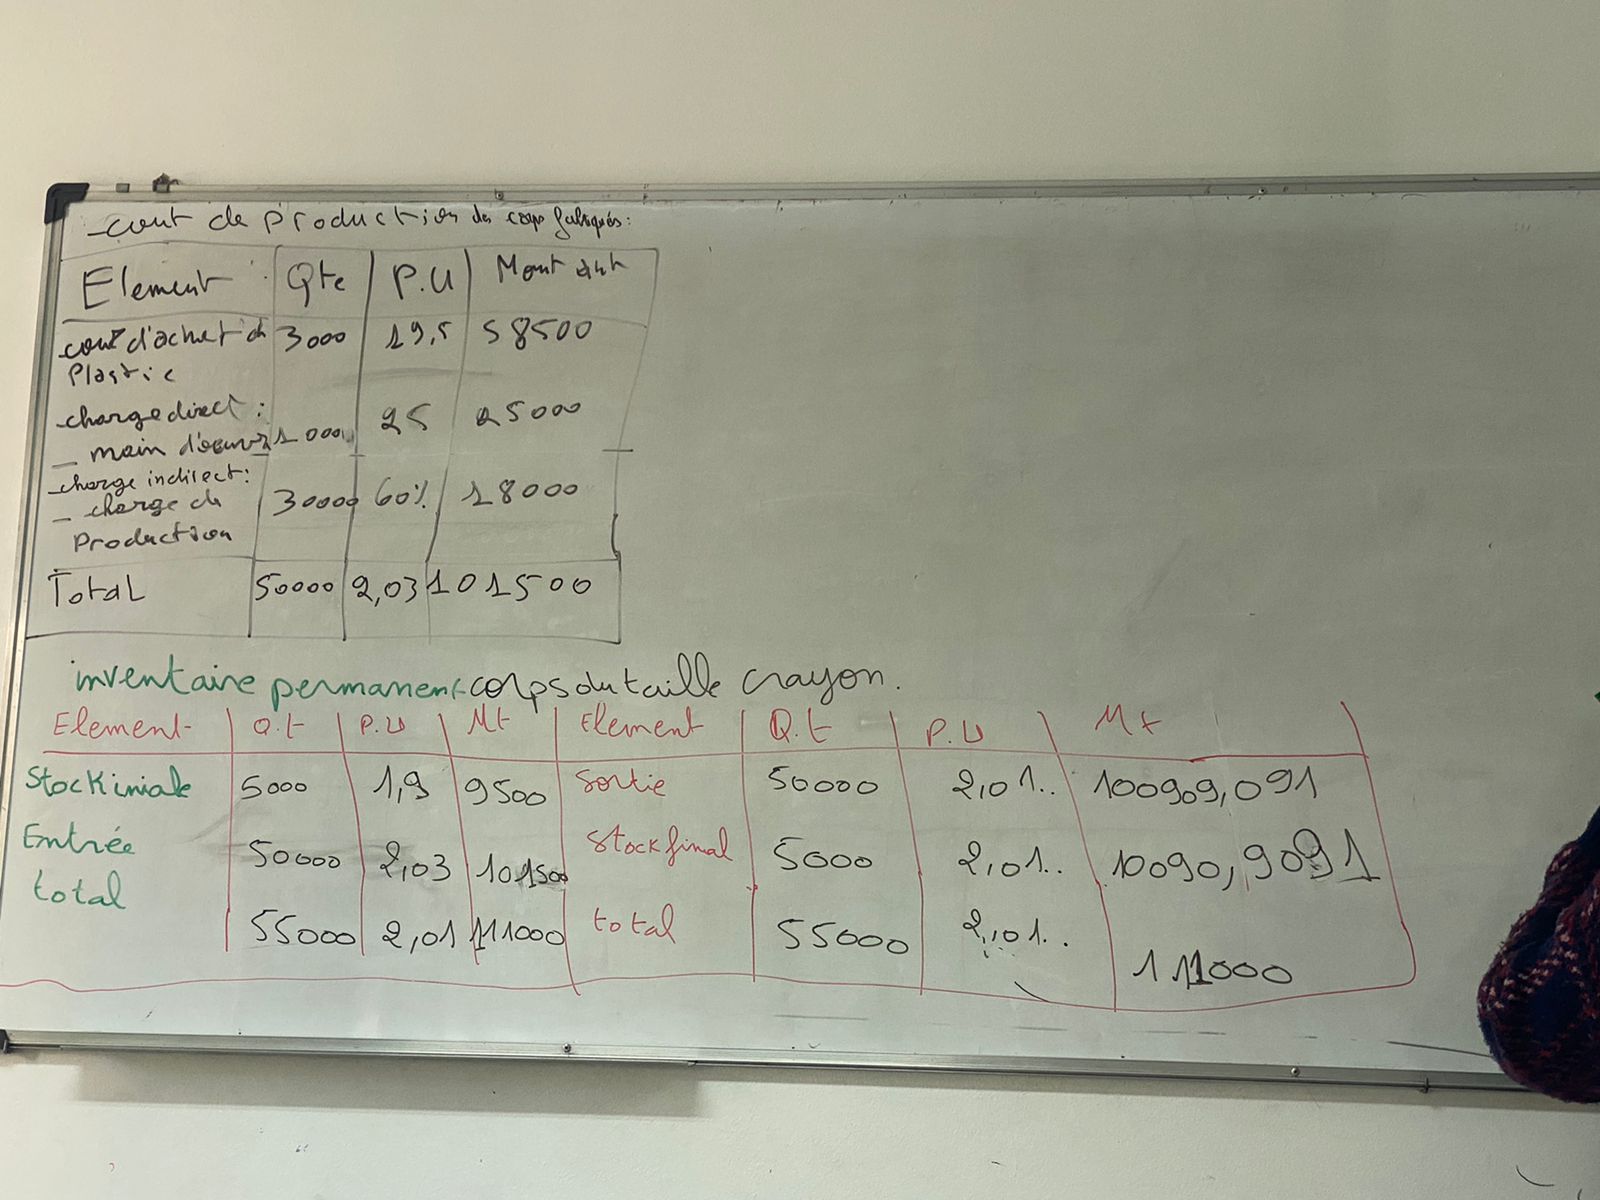 cout de production des corps fabriqués:
Element Qte P.U Montant
cout d'achat de 3000 19,5 58500
Plastic
charge direct: 25 25000
_ main d'oeuvr 1000
charge indirect:
_ charge de 30000 60% 18000
Production
Total 50000 2,03 101500
inventaire permanent corps du taille crayon.
Element Q.t P.U Mt Element Q.t P.U Mt
Stock iniale 5000 1,9 9500 Sortie 50000 2,01.. 100909,091
Entrée 50000 2,03 101500 Stock final 5000 2,01.. 10090,9091
total 55000 2,01 111000 total 55000 2,01.. 111000